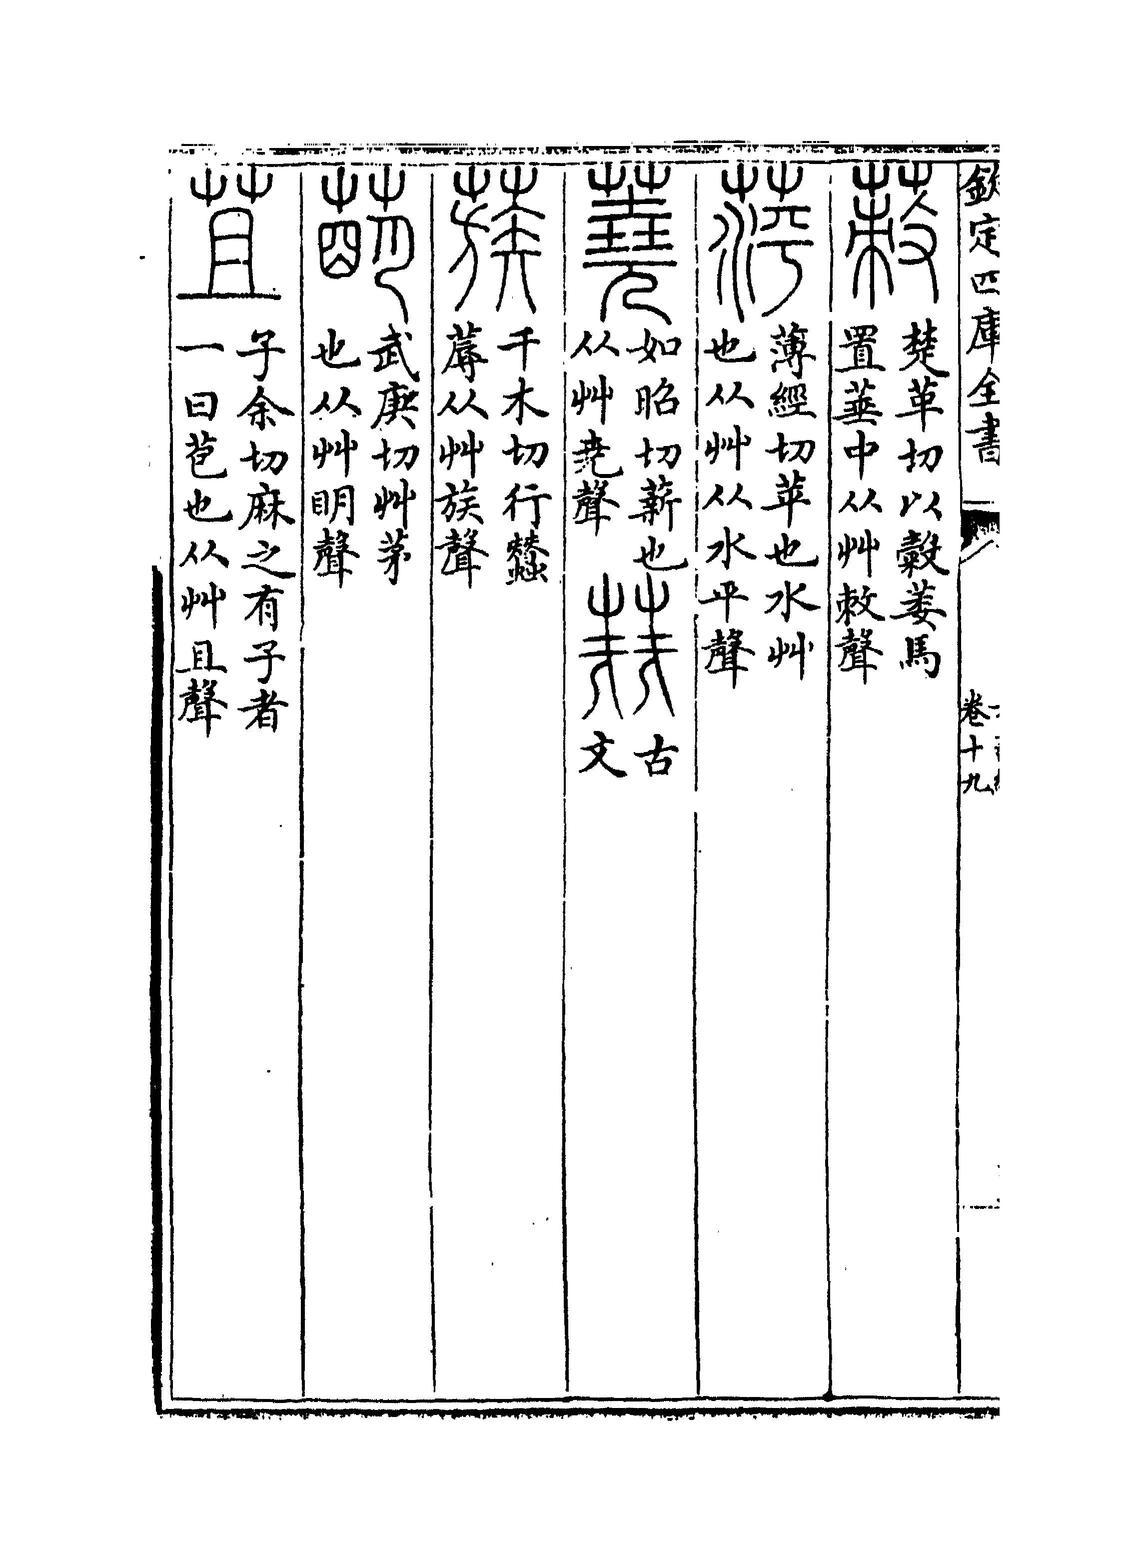 欽定四庫全書
卷十九
蓛
楚革切以糓萎馬
置莝中从艸敕聲
蓱
薄經切苹也水艸
也从艸从水平聲
蕘
如昭切薪也
从艸堯聲
古
文
蔟
千木切行蠶
蓐从艸族聲
萌
武庚切艸茅
也从艸明聲
苴
子余切麻之有子者
一曰苞也从艸且聲